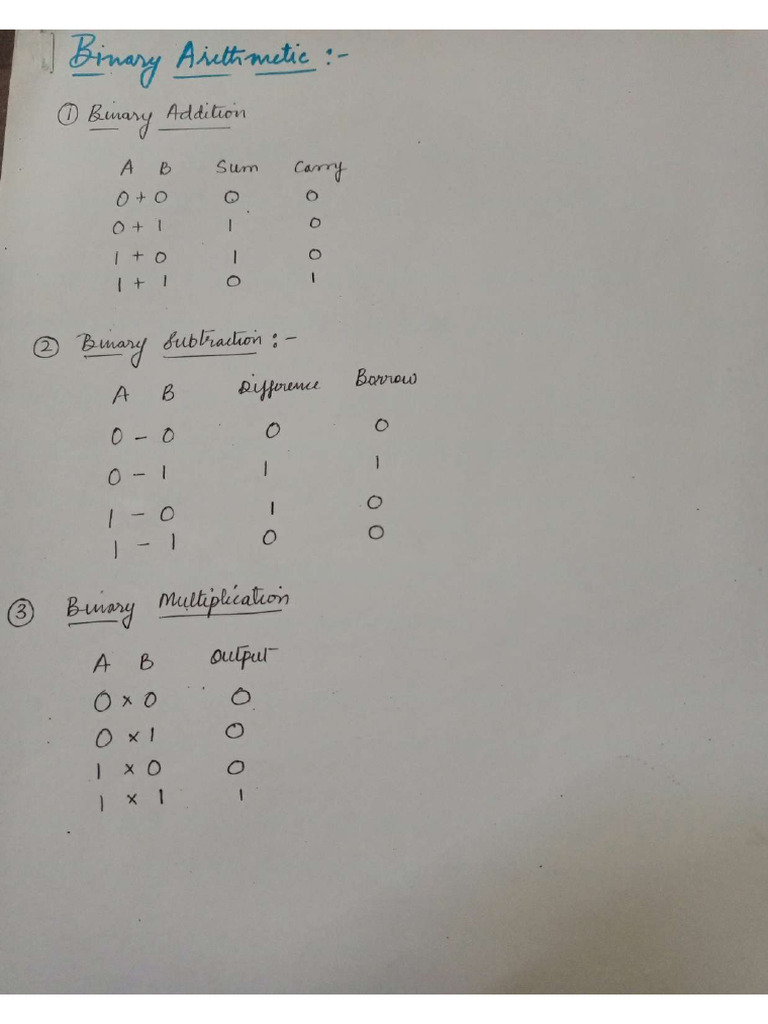 Binary Arithmetic :-
① Binary Addition
A B Sum Carry
0 + 0 0 0
0 + 1 1 0
1 + 0 1 0
1 + 1 0 1
② Binary Subtraction :-
A B Difference Borrow
0 - 0 0 0
0 - 1 1 1
1 - 0 1 0
1 - 1 0 0
③ Binary Multiplication
A B Output
0 × 0 0
0 × 1 0
1 × 0 0
1 × 1 1